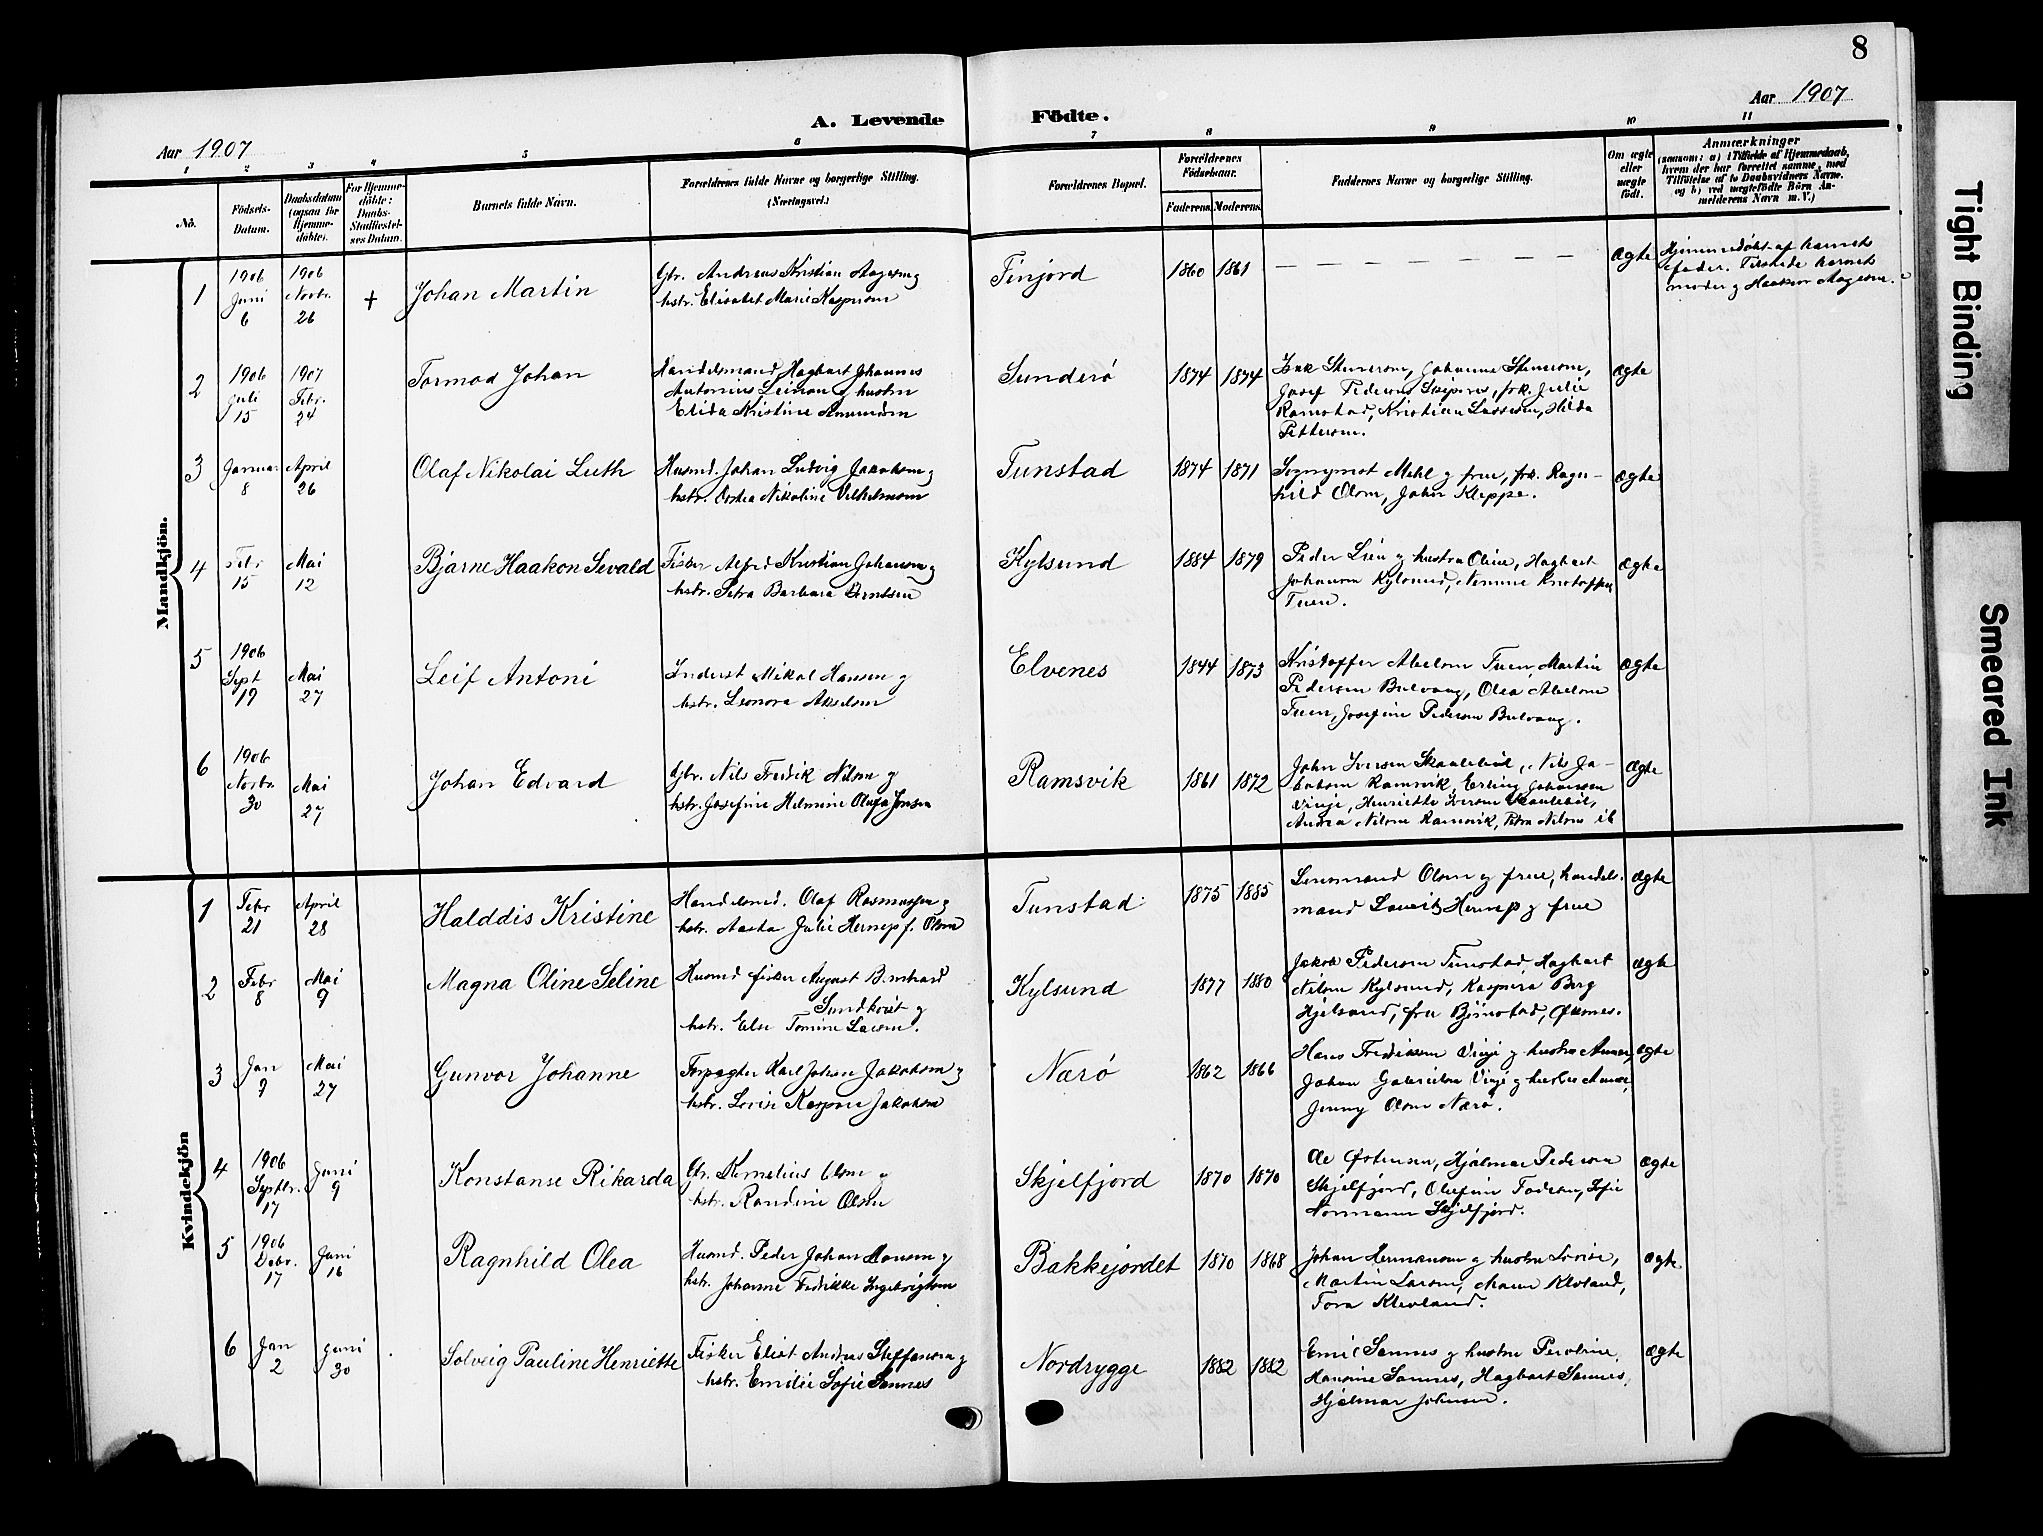 8
Aar 1907
A. Levende Födte.
Aar 1907
1 2 3 4 5 6 7 8 9 10 11
No.
Födsels-Datum.
Daabsdatum (ogsaa for Hjemme-döbte).
For Hjemme-döbte: Daabs-Stadfæstel-ses Datum.
Barnets fulde Navn.
Forældrenes fulde Navne og borgerlige Stilling. (Næringsvei.)
Forældrenes Bopæl.
Forældrenes Födselsaar.
Faderens. Moderens.
Faddernes Navne og borgerlige Stilling.
Om ægte eller uægte födt.
Anmærkninger
(saasom: a) i Tilfælde af Hjemmedaab,
hvem der har forrettet samme, med
Tilföielse af to Daabsvidners Navne.
og b) ved uægtefödte Börn An-
melderens Navn m. V.)
Mandkjön.
1
1906 Juni 6
1906 Novbr. 26
+
Johan Martin
Gbr. Andreas Kristian Aagesen og
hstr. Elisabet Marie Kaspersen
Finjord
1860 1861
— — — — — — — — —
Ægte
Hjemmedøbt af barnets
fader. Tilstede barnets
moder og Haakon Aagesen.
2
1906 Juli 15
1907 Febr. 24
Tormod Johan
Handelsmand Hagbart Johannes
Antonius Leinan og hustru
Elida Kristine Amundsen
Sunderö
1874 1874
Johanna Stenersen,
Josef Pedersen frk. Julie
Ramstad, Kristian Lassesen, Hilda
Pettersen.
Ægte
3
Januar 8
April 26
Olaf Nikolai Luth
Husmd. Johan Ludvig Jakobsen og
hstr. Nikoline Vilhelmsen
Tunstad
1874 1871
Sogneprest Mehl og frue, frk. Ragn-
hild Olsen, Johan Kleppe.
Ægte
4
Febr 15
Mai 12
Bjarne Haakon Sevald
Fisker Alfred Kristian Johansen og
hstr. Petra Barbara Berntsen
Kylsund
1884 1879
Peder Lien og hustru Oline, Hagbart
Johansen Kylsund,
Tuen.
Ægte
5
1906 Sept 19
Mai 27
Leif Antoni
Inderst Mikal Hansen og
hstr. Leonora Akselsen
Elvenes
1844 1873
Kristoffer Abelsen Tuen, Martin
Pedersen Bulvang, Olea Abelsen
Tuen, Josefine Pedersen Bulvang.
Ægte
6
1906 Novbr. 30
Mai 27
Johan Edvard
Gbr. Nils Fredrik Nilsen og
hstr. Josefine Helmine Olufa Jensen
Ramsvik
1861 1872
John Iversen Skaalebøl, Nils Ja-
kobsen Ramsvik, Erling Johansen
Vinje, Henriette Iversen Skaalebøl,
Andrea Nilsen Ramsvik, Petra Nilsen ib
Ægte
Kvindekjön
1
Febr 21
April 28
Halddis Kristine
Handelsmd. Olaf Rasmussen og
hstr. Aasta Julie f. Olsen
Tunstad
1875 1885
Lensmand Olsen og frue, handels-
mand og frue
Ægte
2
Febr 8
Mai 9
Magna Oline Seline
Husmd fisker August Bernhard
Sundkvist og
hstr. Else Tomine Larsen.
Kylsund
1877 1880
Jakob Pedersen Tunstad, Hagbart
Nilsen Kylsund, Kaspara Berg
Hjelsand, fru Björnstad, Øksnes.
Ægte
3
Jan 9
Mai 27
Gunvor Johanne
Forpagter Karl Johan Jakobsen og
hstr. Lovise Jakobsen
Nærö
1862 1866
Hans Fredriksen Vinje og hustru Anna,
Johan Gabrielsen Vinje og hustru Anna,
Jenny Olsen Nærö.
Ægte
4
1906 Septbr. 17
Juni 9
Konstanse Rikarda
Gbr. Kornelius Olsen og
hstr. Randine Olsen
Skjelfjord
1870 1870
Ole Østensen, Hjalmar Pedersen
Skjelfjord, Olufine Todesen, Sofie
Normann Skjelfjord.
Ægte
5
1906 Debr. 17
Juni 16
Ragnhild Olea
Husmd. Peder Johan Hansen og
hstr. Johanne Fredrikke Ingebrigtsen
Bakkejordet
1870 1868
Johan Hermansen og hustru Lovise,
Martin Larsen, Maren Klevland,
Tora Klevland.
Ægte
6
Jan 2
Juni 30
Solveig Pauline Henriette
Fisker Eliot Andreas Steffensen og
hstr. Emilie Sofie Sannes
Nordrygge
1882 1882
Emil Sannes og hustru Peroline,
Hansine Sannes, Hagbart Sannes,
Hjalmar Johnsen.
Ægte
Tight Binding
Smeared Ink